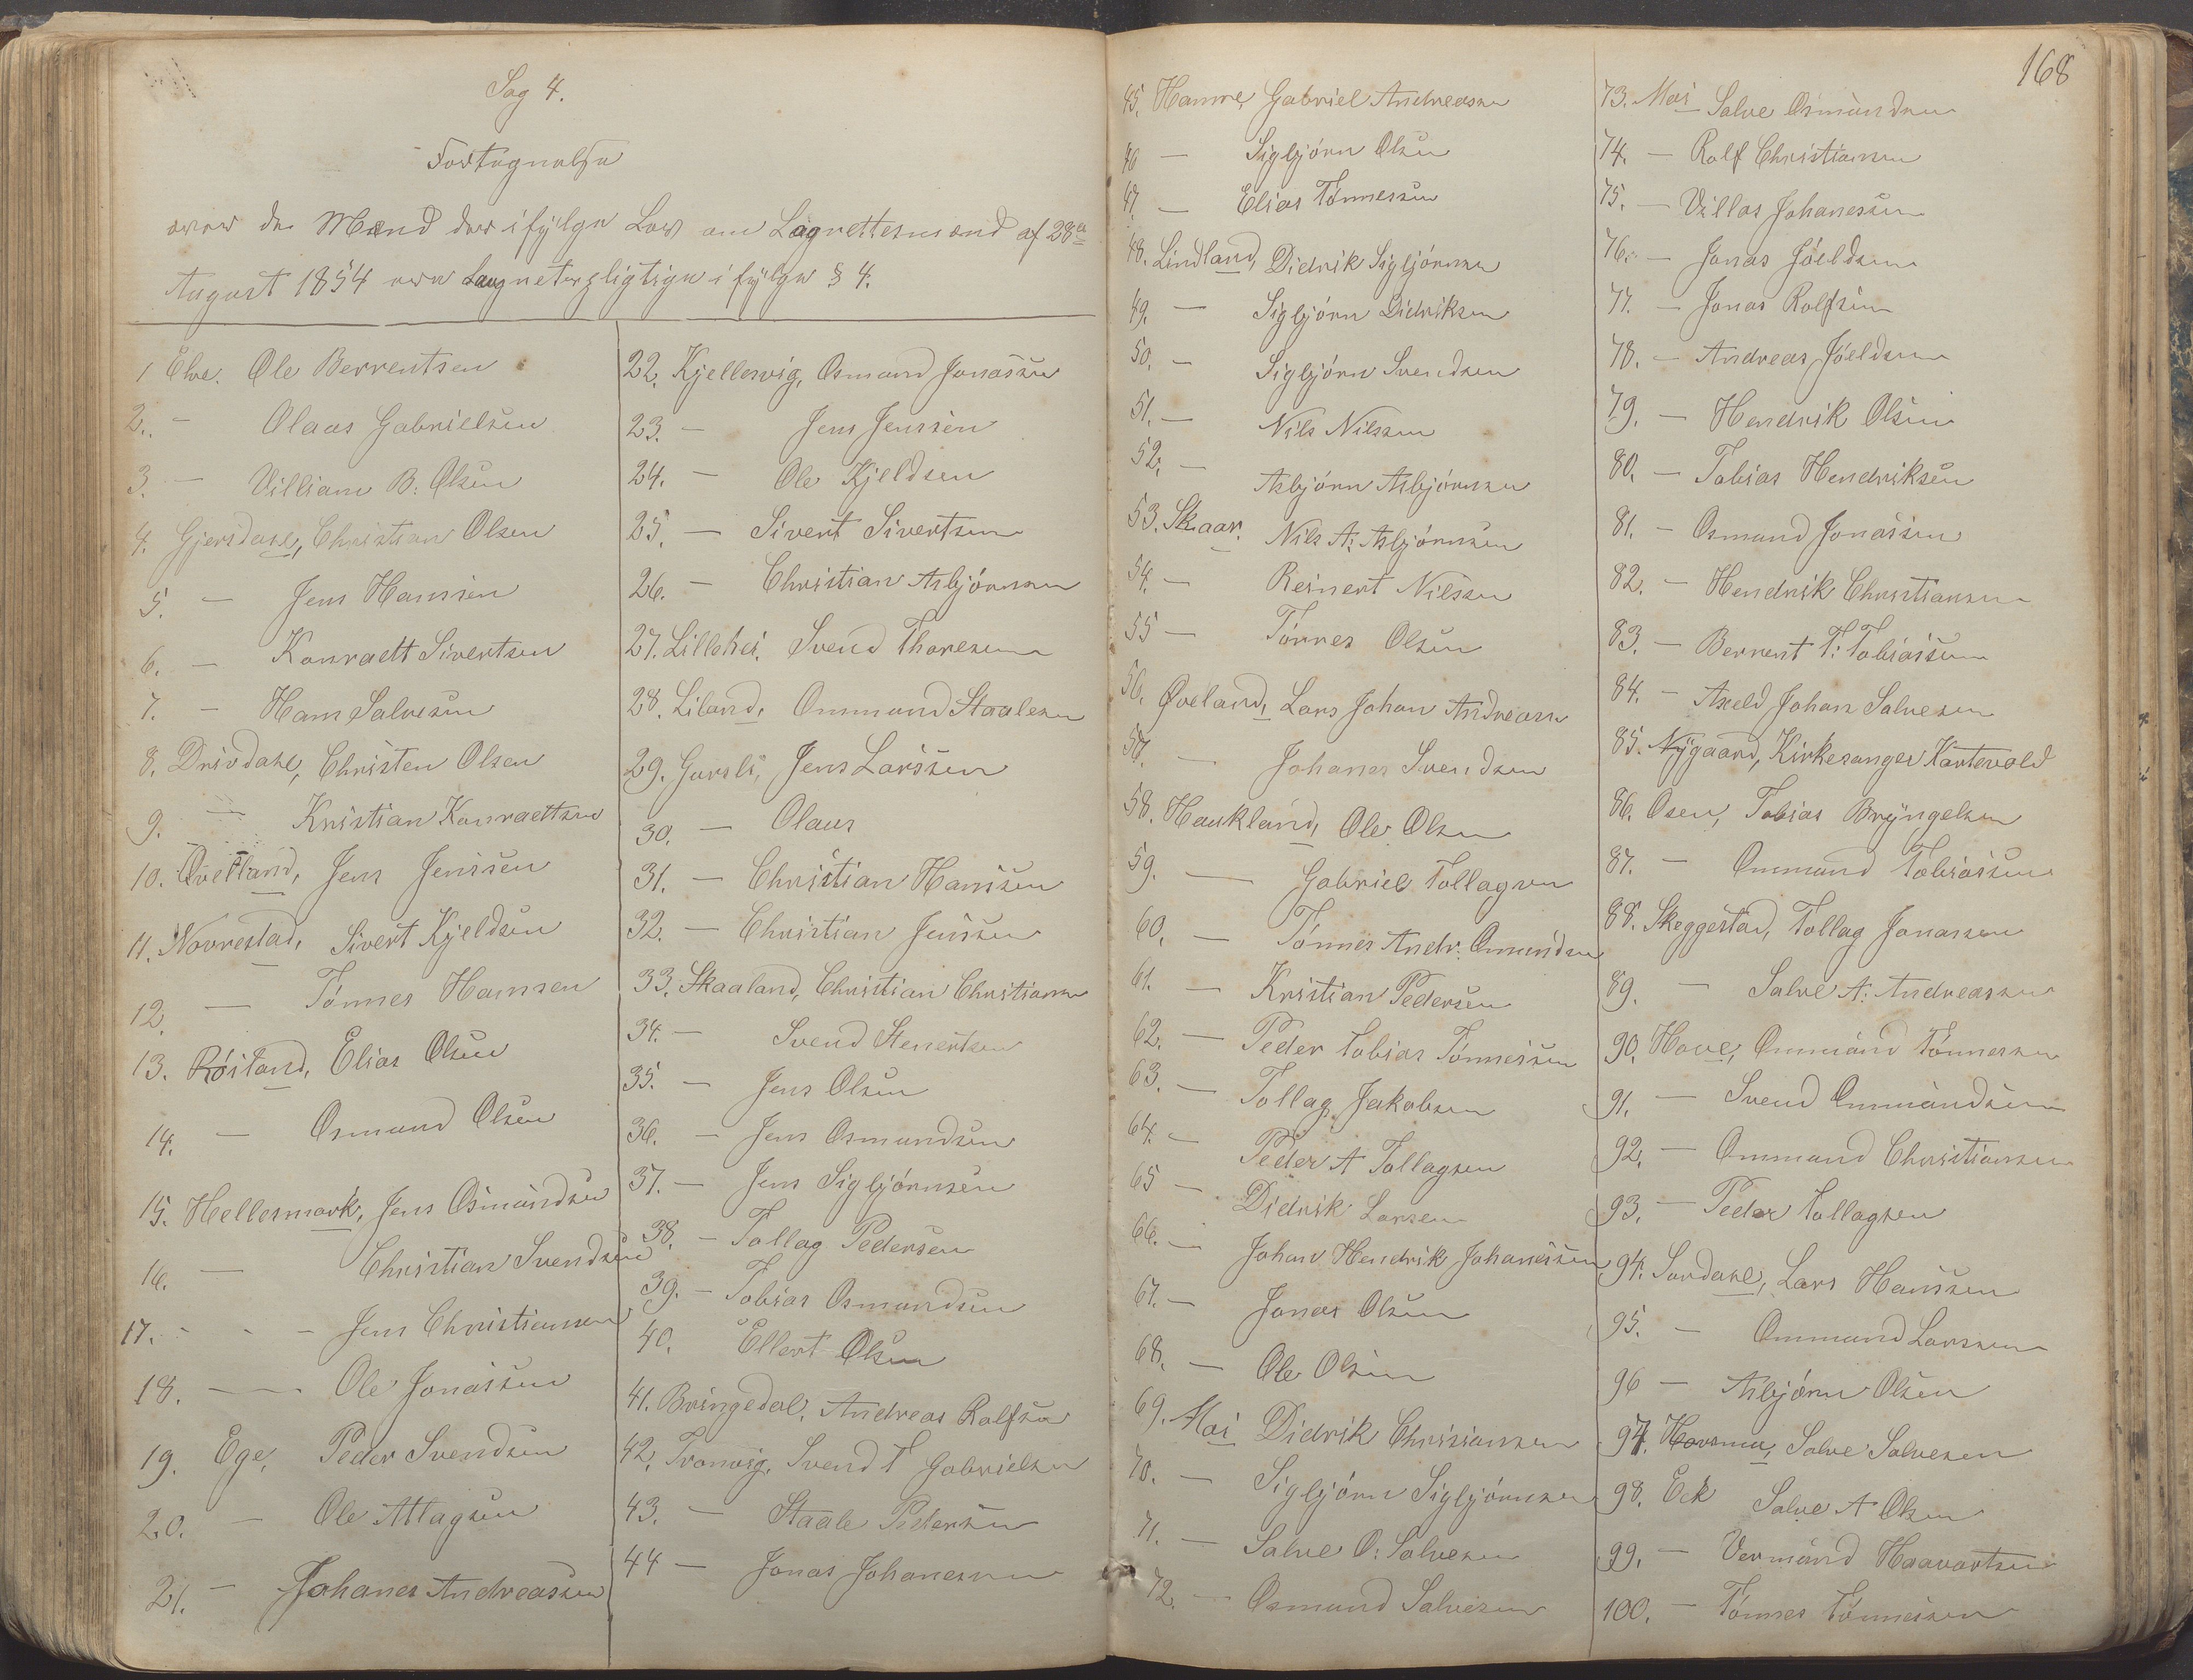 Sag 4.
Fortegnelse
over de Mænd der ifylge Lov om Lagrettesmænd af 28de
August 1854 ere Laugretepligtige i fylge § 4.
1 Elve. Ole Berrentsen
2. - Olaus Gabrielsen
3. - Villiam B: Olsen
4. Gjersdahl, Christian Olsen
5. - Jens Hansen
6. - Konraett Sivertsen
7. - Hans Salvesen
8. Drivdahl, Christen Olsen
9. - Kristian Konraettsen
10. Øvelland, Jens Jenssen
11. Novrestad, Sivert Kjeldsen
12. - Tønnes Hansen
13. Røiland, Elias Olsen
14. - Osmund Olsen
15. Hellesmark, Jens Osmundsen
16. - Christian Svendsen
17. - - - Jens Christiansen
18. - - Ole Jonassen
19. Ege, Peder Svendsen
20. - Ole Atlagsen
21. - Johanes Andreassen
22. Kjellesvig, Osmund Jonassen
23. - Jens Jenssen
24. - Ole Kjeldsen
25. - Sivert Sivertsen
26. - Christian Asbjørnsen
27. Lillehei. Svend Thoresen
28. Liland, Ommund Staalesen
29. Gursli, Jens Larssen
30. - Olaus
31. - Christian Hanssen
32. - Christian Jenssen
33. Skaaland, Christian Christiansen
34. - Svend Stenertsen
35. - Jens Olsen
36. - Jens Osmundsen
37. - Jens Sigbjørnsen
38. - Tollag Pedersen
39. - Tobias Osmundsen
40. Ellert Olsen
41. Bringedal, Andreas Rolfsen
42. Tronvig, Svend T Gabrielsen
43. - Staale Pedersen
44 - Jonas Johanesen
168
45. Hamre, Gabriel Andreassen
46 - Sigbjørn Olsen
47. - Elias Tønnessen
48. Lindland, Didrik Sigbjørnsen
49. - Sigbjørn Didriksen
50. - Sigbjørn Svendsen
51. - Nils Nilssen
52. - Asbjørn Asbjørnsen
53. Skaar. Nils A: Asbjørnsen
54. - Reinert Nilssen
55 - Tønnes Olsen
56. Øveland, Lars Johan Andreasen
57. - Johanes Svendsen
58. Haukland, Ole Olsen
59. - Gabriel Tollagsen
60. - Tønnes Andr: Omundsen
61. - Kristian Pedersen
62. - Peder Tobias Tønnessen
63. - Tollag Jakobsen
64. - Peder A Tollagsen
65 - Didrik Larsen
66. - Johan Hendrik Johanessen
67. - Jonas Olsen
68. - Ole Olsen
69. Moi Didrik Chrisiansen
70. - Sigbjørn Sigbjørnsen
71. - Salve O: Salvesen
72. - Osmund Salvesen
73. Moi Salve Osmundsen
74. - Rolf Christiansen
75. - Villas Johanesen
76. - Jonas Jóeldsen
77. - Jonas Rolfsen
78. - Andreas Jóeldsen
79. - Hendrik Olsen
80. - Tobias Hendriksen
81. - Osmund Jonassen
82. - Hendrik Christiansen
83. - Berrent T: Tobiassen
84. - Axeld Johan Salvesen
85. Nÿgaard, Kirkesanger Kartevold
86. Osen, Tobias Brÿngelsen
87. - Ommund Tobiassen
88. Skeggestad, Tollag Jonassen
89. - Salve A: Andreassen
90. Hove, Ommund Tønnessen
91. - Svend Ommundsen
92. - Ommund Christiansen
93. - Peder Tollagsen
94. Surdahl, Lars Hanssen
95. - Ommund Larssen
96 - Asbjørn Olsen
97. Salve Salvesen
98. Eek Salve A Olsen
99. - Vermund Haavartsen
100. - Tønnes Tønnessen